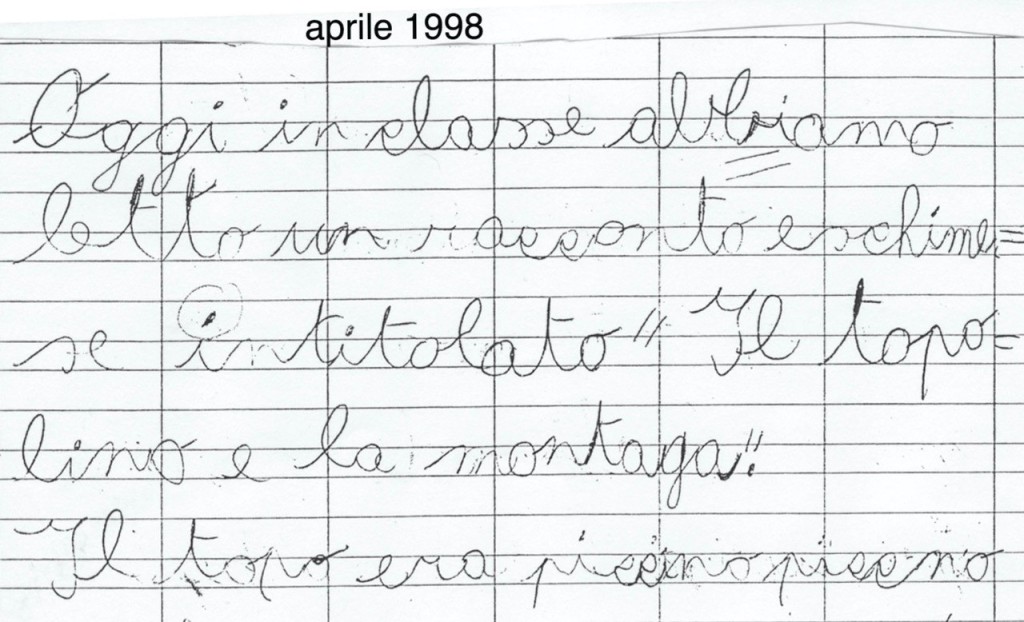 aprile 1998
Oggi in classe abbiamo
letto un racconto eschime=
se intitolato "Il topo=
lino e la montaga".
Il topo era piccino piccino